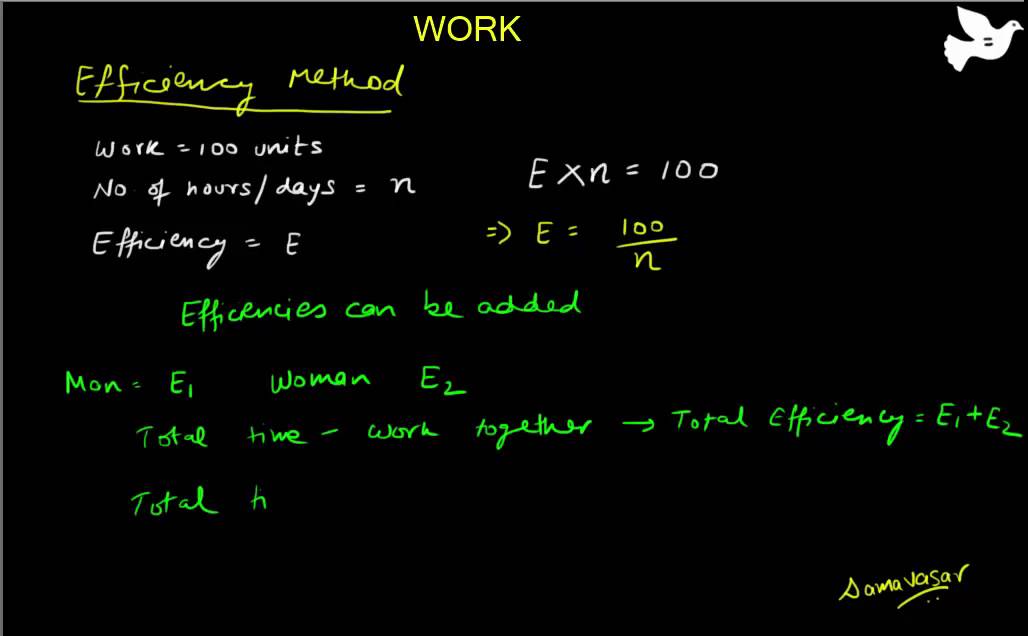 WORK
Efficiency Method
Work = 100 units
No of hours/days = n
E × n = 100
Efficiency = E
=> E = 100/n
Efficiencies can be added
Man = E₁ Woman E₂
Total time - work together → Total Efficiency = E₁+E₂
Total ti
Samavasar